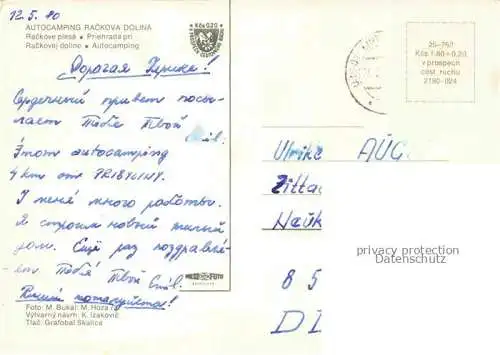 12.5.80
AUTOCAMPING RAČKOVA DOLINA
Račkove plesá • Priehrada pri
Račkovej doline • Autocamping
Kčs 0,20
Дорогая !
Сердечный привет посы-
лает Тебе Твой
Этот autocamping
4 km от PRIBYLINY.
У меня много работы.
Я строим новый жилый
дом. Ещё раз поздравля-
ем Тебя! Твой
Foto: M. Bukal, M. Hoza
Výtvarný návrh: K. Izakovič
Tlač: Grafobal Skalica
FOTO
Kčs 1,60 + 0,20
v prospech
cest. ruchu
2180-024
Ulrike AUG
Zitta
Hauk
privacy protection
Datenschutz
85
D